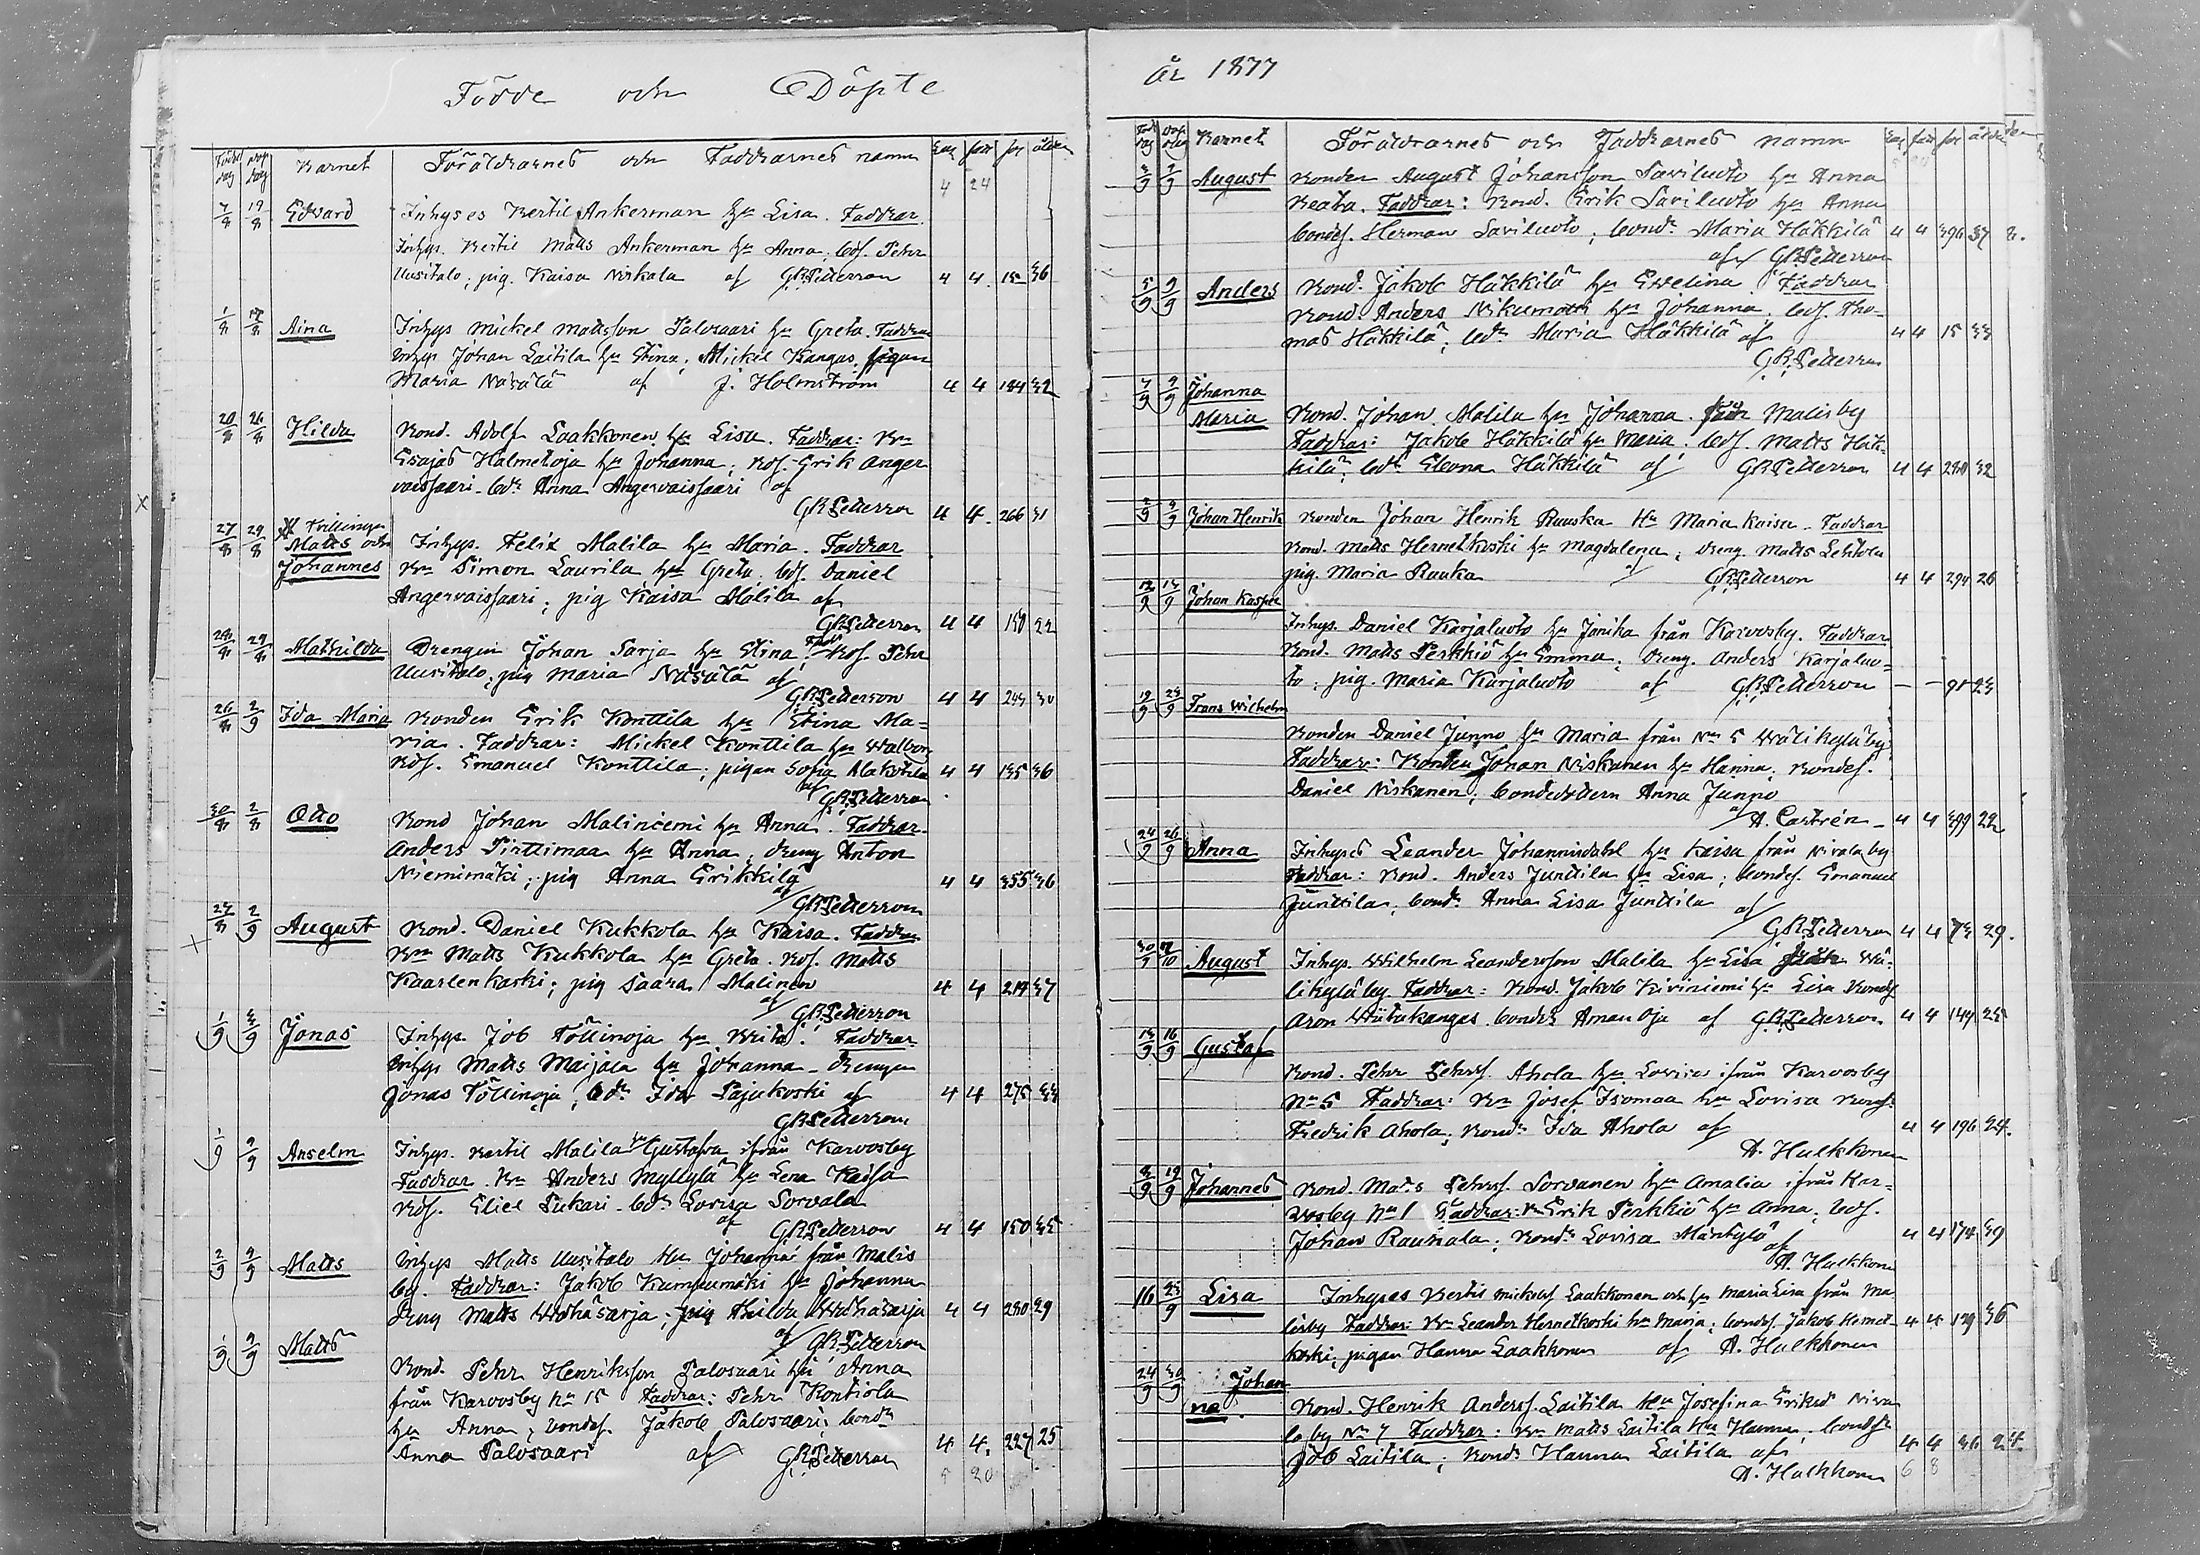 Födde och Döpte
Födel dag döp dag Barnet Föräldrarnes och Faddrarnes namn
4 24
7/8 19/8 Edvard Inhyses Bertil Ankerman hu Lisa. Faddrar
Inhys. Bertil Matts Ankerman hu Anna; bds. Pehr
Uusitalo; pig. Kaisa Niskala af G.R. Pettersson 4 4 15 36
1/8 Aina Inhys Mickel Mattsson Palosaari hu Greta. Faddrar
Inhys Johan Laitila hu Stina; Mickel Kangas pigan
Maria Näsälä af J. Holmström 4 4 184 32
20/8 26/8 Hilda Bond. Adolf Laakkonen hu Lisa. Faddrar: Bn
Esajas Halmetoja hu Johanna; Bds. Erik Anger
vaissaari. bdr Anna Angervaissaari af
G.R. Pettersson 4 4 266 31
27/8 29/8 Tvillingar
Matts och Inhys. Felix Malila hu Maria. Faddrar
Johannes Bn Simon Laurila hu Greta. bds. Daniel
Angervaissaari; pig Kaisa Malila af
G.R. Pettersson 4 4 150 22
28/8 29/8 Mathilda Drengen Johan Sarja hu Stina, Fadd Bds. Pehr
Uusitalo; pig Maria Näsälä af
G.R. Pettersson 4 4 30
26/8 2/9 Ida Maria Bonden Erik Konttila hu Stina Ma=
ria. Faddrar: Mickel Konttila hu Walborg
Bds. Emanuel Konttila; pigan Sofia Alakotila 4 4 135 36
af G.R. Pettersson
30/8 2/8 Otto Bond Johan Maliniemi hu Anna. Faddrar
Anders Pinttimaa hu Anna; dreng Anton
Niemimäki; pig Anna Erikkilä 4 4 355 36
af G.R. Pettersson
2/9 August Bond. Daniel Kukkola hu Kaisa. Faddrar
Bn Matts Kukkola hu Greta. Bds. Matts
Kaarlenkoski; pig Saara Malinen 4 4 219 37
af G.R. Pettersson
1/9 Jonas Inhys. Job Töllinoja hu Brita. Faddrar
Inhys Matts Maijala hu Johanna. Drengen
Jonas Töllinoja; bdr Ida Pajukoski af 4 4 275 33
G.R. Pettersson
1/9 2/9 Anselm Inhys. Bertil Malila hu Gustafva ifrån Karvosby
Faddrar. Bn Anders Myllylä hu Lena Kaisa
Bds. Eliel Pukari. bdr Lovisa Sorvala
af G.R. Pettersson 4 4 150 35
2/9 9/9 Matts Inhys Matts Uusitalo hu Johanna från Malis
by. Faddrar: Jakob Kumpumäki hu Johanna
Dreng Matts Wähäsarja; pig Hilda Wähäsarja 4 4 280 29
af G.R. Pettersson
1/9 9/9 Matts
Bond. Pehr Henriksson Palosaari hu Anna
från Karvosby No 15 Faddrar: Pehr Kontiola
hu Anna; bondes. Jakob Palosaari; bondr
Anna Palosaari af G.R. Pettersson 4 4 227 25
20
År 1877
Barnet Föräldrarnes och Faddrarnes namn
August Bonden August Johansson Saviluoto hu Anna
Beata. Faddrar: Bond. Erik Saviluoto hu Anna
bondes. Herman Saviluoto; bondr Maria Häkkilä 4 4 396 37
af G.R. Pettersson
5/9 9/9 Anders Bond. Jakob Häkkilä hu Evelina. Faddrar
Bond. Anders hu Johanna; bds. Tho=
mas Häkkilä; bdr Maria Häkkilä af 4 4 15 33
G.R. Pettersson
7/9 9/9 Johanna
Maria Bond. Johan Malila hu Johanna. från Malisby
Faddrar: Jakob Häkkilä hu Maria. bds. Matts Häk=
kilä; bdr Elvina Häkkilä af G.R. Pettersson 4 4 32
Johan Henrik Bonden Johan Henrik Rauska hu Maria Kaisa. Faddrar
Bond. Matts Hernetkoski hu Magdalena; dreng. Matts Lehtola
pig. Maria Rauska af G.R. Pettersson 4 4 294 26
Johan Kasper
Inhys. Daniel Karjaluoto hu Janika från Karvosby. Faddrar
Bond. Matts Perkkiö hu Emma; Dreng. Anders Karjaluo=
to; pig. Maria Karjaluoto af G.R. Pettersson — — 91 23
19/9 23/9 Frans Wilhelm
Bonden Daniel Junno hu Maria från No 5 Wälikyläby
Faddrar: Bonden Johan Niskanen hu Hanna; Bondes.
Daniel Niskanen; bondedottern Anna Junno
af A. Castrén 4 4 399 22
24/9 26/9 Anna Inhyses Leander Johannisdahl hu Kaisa från Nivala by
Faddrar: Bond. Anders Junttila hu Lisa; bondes. Emanuel
Junttila; bondr Anna Lisa Junttila af
G.R. Pettersson 4 4 73 29.
August Inhys. Wilhelm Leandersson Malila hu Lisa från Wä=
likyläby Faddrar: Bond. Jakob Kiviniemi hu Lisa Bondes
Aron Wiitakangas. bondr Aman Oja af G.R. Pettersson 4 4 149 25
16/9 Gustaf
Bond. Pehr Pehrss. Ahola hu Lovisa ifrån Karvosby
No 5 Faddrar: Bn Josef Isomaa hu Lovisa Bondes
Fredrik Ahola; Bondr Ida Ahola af 4 4 196 24.
A. Hulkkonen
19/9 Johannes Bond. Matts Pehrss. Sorvanen hu Amalia ifrån Kar=
vosby No 1 Faddrar: Bn Erik Perkkiö hu Anna; bds.
Johan Raudala; Bondr Lovisa Mäntylä 4 4 174 39
af A. Hulkkonen
16 23/9 Lisa Inhyses Bertil Mickels Laakkonen och hu Maria Lisa från Ma
lisby Faddrar: Bn Leander Hernetkoski hu Maria; bondes. Jakob Hernet= 4 4 129 36
koski; pigan Hanna Laakkonen af A. Hulkkonen
24/9 30/9 Johan
na Bond. Henrik Anderss. Laitila hu Josefina Eriksd. Niva
la by No 7 Faddrar: Bn Matts Laitila hu Hanna; bonds
Job Laitila; Bondr Hanna Laitila af 4 4 36 24
A. Hulkkonen 6 8